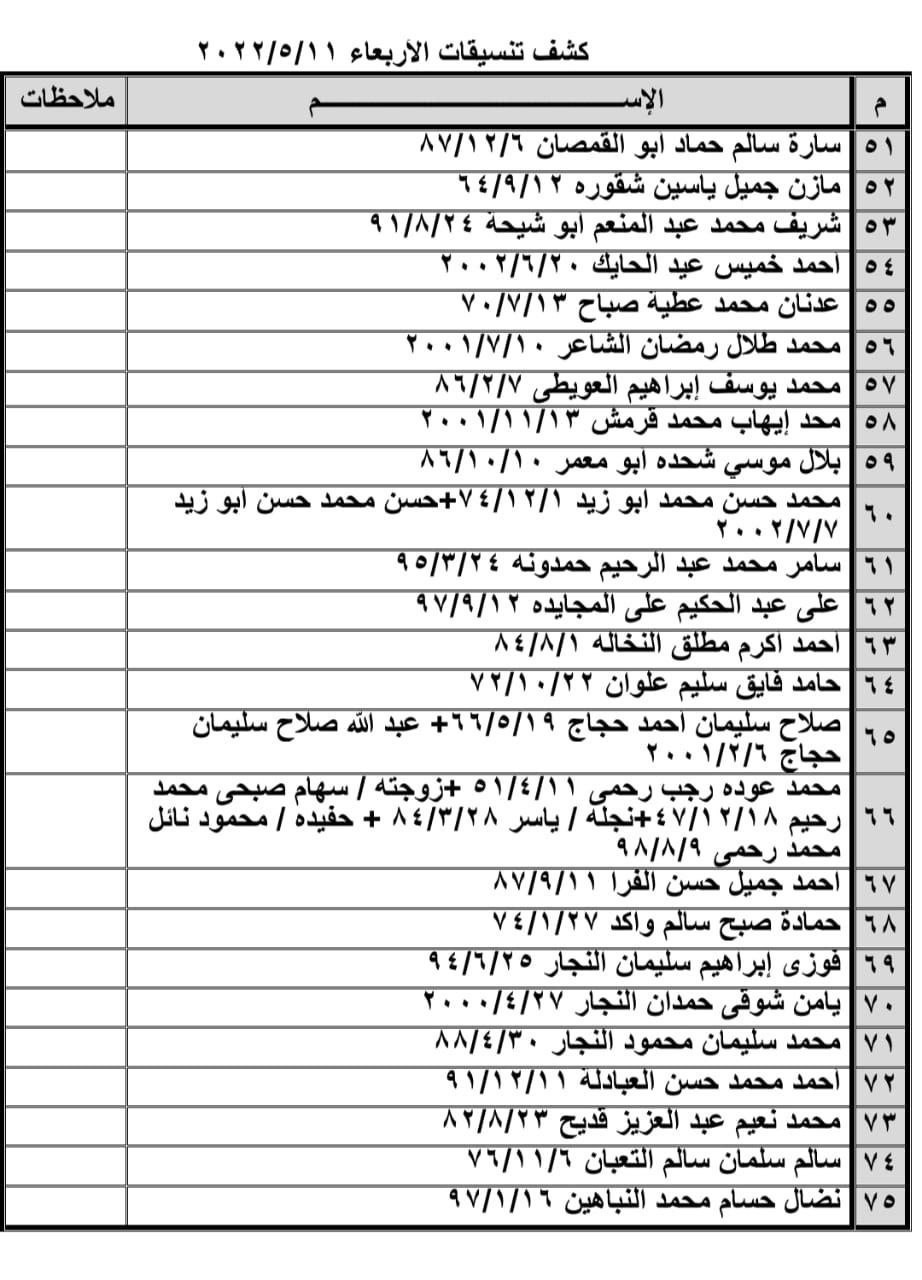 كشف تنسيقات الأربعاء ٢٠٢٢/٥/١١
م الإســـــم ملاحظات
٥١ سارة سالم حماد ابو القمصان ٨٧/١٢/٦
٥٢ مازن جميل ياسين شقوره ٦٤/٩/١٢
٥٣ شريف محمد عبد المنعم ابو شيحة ٩١/٨/٢٤
٥٤ احمد خميس عيد الحايك ٢٠٠٢/٦/٢٠
٥٥ عدنان محمد عطية صباح ٧٠/٧/١٣
٥٦ محمد طلال رمضان الشاعر ٢٠٠١/٧/١٠
٥٧ محمد يوسف إبراهيم العويطى ٨٦/٢/٧
٥٨ محد إيهاب محمد قرمش ٢٠٠١/١١/١٣
٥٩ بلال موسي شحده ابو معمر ٨٦/١٠/١٠
٦٠ محمد حسن محمد ابو زيد ٧٤/١٢/١+حسن محمد حسن ابو زيد
٢٠٠٢/٧/٧
٦١ سامر محمد عبد الرحيم حمدونه ٩٥/٣/٢٤
٦٢ على عبد الحكيم على المجايده ٩٧/٩/١٢
٦٣ احمد اكرم مطلق النخاله ٨٤/٨/١
٦٤ حامد فايق سليم علوان ٧٢/١٠/٢٢
٦٥ صلاح سليمان احمد حجاج ٦٦/٥/١٩+ عبد الله صلاح سليمان
حجاج ٢٠٠١/٢/٦
٦٦ محمد عوده رجب رحمى ٥١/٤/١١ +زوجته / سهام صبحى محمد
رحيم ٤٧/١٢/١٨+نجله / ياسر ٨٤/٣/٢٨ + حفيده / محمود نائل
محمد رحمي ٩٨/٨/٩
٦٧ احمد جميل حسن الفرا ٨٧/٩/١١
٦٨ حمادة صبح سالم واكد ٧٤/١/٢٧
٦٩ فوزى إبراهيم سليمان النجار ٩٤/٦/٢٥
٧٠ يامن شوقى حمدان النجار ٢٠٠٠/٤/٢٧
٧١ محمد سليمان محمود النجار ٨٨/٤/٣٠
٧٢ احمد محمد حسن العبادلة ٩١/١٢/١١
٧٣ محمد نعيم عبد العزيز قديح ٨٢/٨/٢٣
٧٤ سالم سلمان سالم التعبان ٧٦/١١/٦
٧٥ نضال حسام محمد النباهين ٩٧/١/١٦